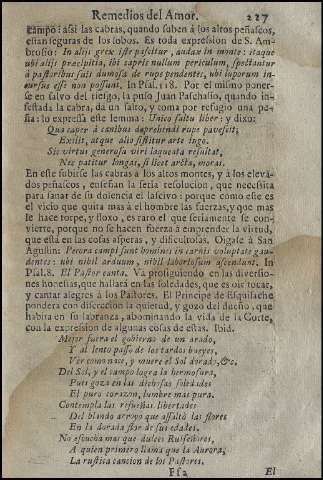 Remedios del Amor. 227
campo: assi las cabras, quando suben à los altos peñascos,
estàn seguras de los lobos. Es toda expression de S. Am-
brosio: In alijs grex iste pascitur, audax in monte: itaque
ubi alijs præcipitia, ibi capris nullum periculum, spectantur
à pastoribus suis dumosa de rupe pendentes, ubi luporum in-
cursus esse non possunt. In Psal. 118. Por el mismo poner-
se en salvo del riesgo, la puso Juan Paschasio, quando in-
festada la cabra, dà un salto, y toma por refugio una pe-
ña: lo expressa este lemma: Unico saltu liber: y dixo:
Quæ caper à canibus deprehendi rupe pavescit;
Exilit, atque alio sistitur arte iugo.
Sic virtus generosa viri laqueata resultat,
Nec patitur longas, si licet arcta, moras.
En este subirse las cabras à los altos montes, y à los eleva-
dos peñascos, enseñan la seria resolucion, que necessita
para sanar de su dolencia el lascivo: porque como esse es
el vicio que quita mas à el hombre las fuerzas, y que mas
le hace torpe, y floxo, es raro el que seriamente se con-
vierte, porque no se hacen fuerza à emprender la virtud,
que està en las cosas asperas, y dificultosas. Oigase à San
Agustin: Pecora campi sunt homines in carnis voluptate gau-
dentes: ubi nibil arduum, nibil laboriosum ascendunt. In
Psal. 8. El Pastor canta. Va prosiguiendo en las diversio-
nes honestas, que hallarà en las soledades, que es oir tocar,
y cantar alegres à los Pastores. El Principe de Esquilache
pondera con discrecion la quietud, y gozo del dueño, que
habita en su labranza, abominando la vida de la Corte,
con la expression de algunas cosas de estas. Ibid.
Mejor fuera el gobierno de un arado,
Y al lento passo de los tardos bueyes,
Ver como nace, y muere el Sol dorado, &c.
Del Sol, y el campo logra la hermosura,
Pues goza en las dichosas soledades
El puro corazon, lumbre mas pura.
Contempla las risueñas libertades
Del blando arroyo que assaltò las flores
En la dorada flor de sus edades.
No escucha mas que dulces Ruiseñores,
A quien primero llama que la Aurora,
La rustica cancion de los Pastores.
Ff2 El